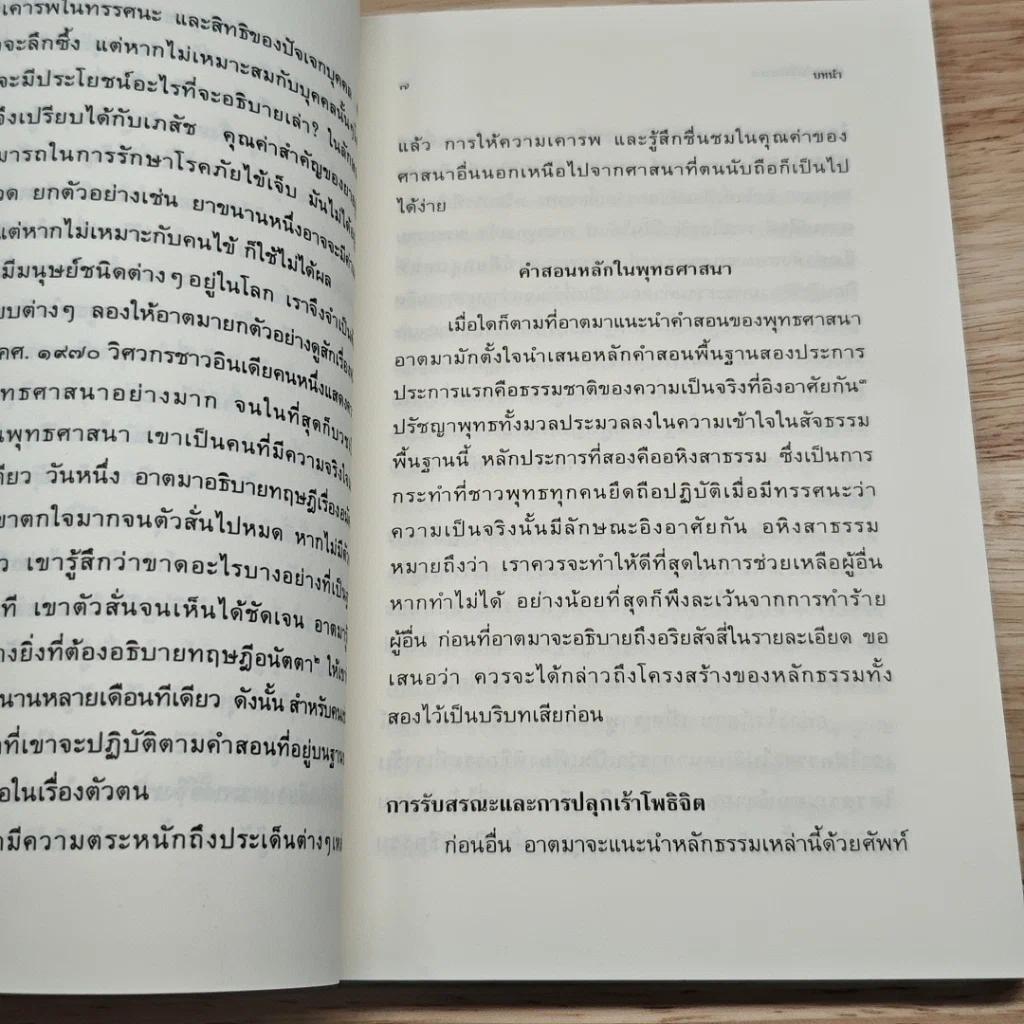 เคารพในทรรศนะ และสิทธิของปัจเจกบุคคล
จะลึกซึ้ง แต่หากไม่เหมาะสมกับบุคคลนั้น
จะมีประโยชน์อะไรที่จะอธิบายเล่า?
จึงเปรียบได้กับเภสัช คุณค่าสำคัญของยา
มารถในการรักษาโรคภัยไข้เจ็บ มันไม่ได้
ยกตัวอย่างเช่น ยาขนานหนึ่งอาจจะมี
แต่หากไม่เหมาะกับคนไข้ ก็ใช้ไม่ได้ผล
มีมนุษย์ชนิดต่างๆ อยู่ในโลก เราจึงจำเป็น
บบต่างๆ ลองให้อาตมายกตัวอย่างดูสักเรื่อง
คศ. ๑๙๗๐ วิศวกรชาวอินเดียคนหนึ่งแสดง
ทธศาสนาอย่างมาก จนในที่สุดก็บวช
พุทธศาสนา เขาเป็นคนที่มีความจริงใจ
ดียว วันหนึ่ง อาตมาอธิบายทฤษฎีเรื่อง
ขาตกใจมากจนตัวสั่นไปหมด หากไม่มี
ว เขารู้สึกว่าขาดอะไรบางอย่างที่เป็น
ที เขาตัวสั่นจนเห็นได้ชัดเจน อาตมารู้
างยิ่งที่ต้องอธิบายทฤษฎีอนัตตา๒ ให้เขา
นานหลายเดือนทีเดียว ดังนั้น สำหรับคน
ที่เขาจะปฏิบัติตามคำสอนที่อยู่บนฐาน
อในเรื่องตัวตน
มีความตระหนักถึงประเด็นต่างๆ
๗ บทนำ
แล้ว การให้ความเคารพ และรู้สึกชื่นชมในคุณค่าของ
ศาสนาอื่นนอกเหนือไปจากศาสนาที่ตนนับถือก็เป็นไป
ได้ง่าย
คำสอนหลักในพุทธศาสนา
เมื่อใดก็ตามที่อาตมาแนะนำคำสอนของพุทธศาสนา
อาตมามักตั้งใจนำเสนอหลักคำสอนพื้นฐานสองประการ
ประการแรกคือธรรมชาติของความเป็นจริงที่อิงอาศัยกัน๓
ปรัชญาพุทธทั้งมวลประมวลลงในความเข้าใจในสัจธรรม
พื้นฐานนี้ หลักประการที่สองคืออหิงสาธรรม ซึ่งเป็นการ
กระทำที่ชาวพุทธทุกคนยึดถือปฏิบัติเมื่อมีทรรศนะว่า
ความเป็นจริงนั้นมีลักษณะอิงอาศัยกัน อหิงสาธรรม
หมายถึงว่า เราควรจะทำให้ดีที่สุดในการช่วยเหลือผู้อื่น
หากทำไม่ได้ อย่างน้อยที่สุดก็พึงละเว้นจากการทำร้าย
ผู้อื่น ก่อนที่อาตมาจะอธิบายถึงอริยสัจสี่ในรายละเอียด ขอ
เสนอว่า ควรจะได้กล่าวถึงโครงสร้างของหลักธรรมทั้ง
สองไว้เป็นบริบทเสียก่อน
การรับสรณะและการปลุกเร้าโพธิจิต
ก่อนอื่น อาตมาจะแนะนำหลักธรรมเหล่านี้ด้วยศัพท์